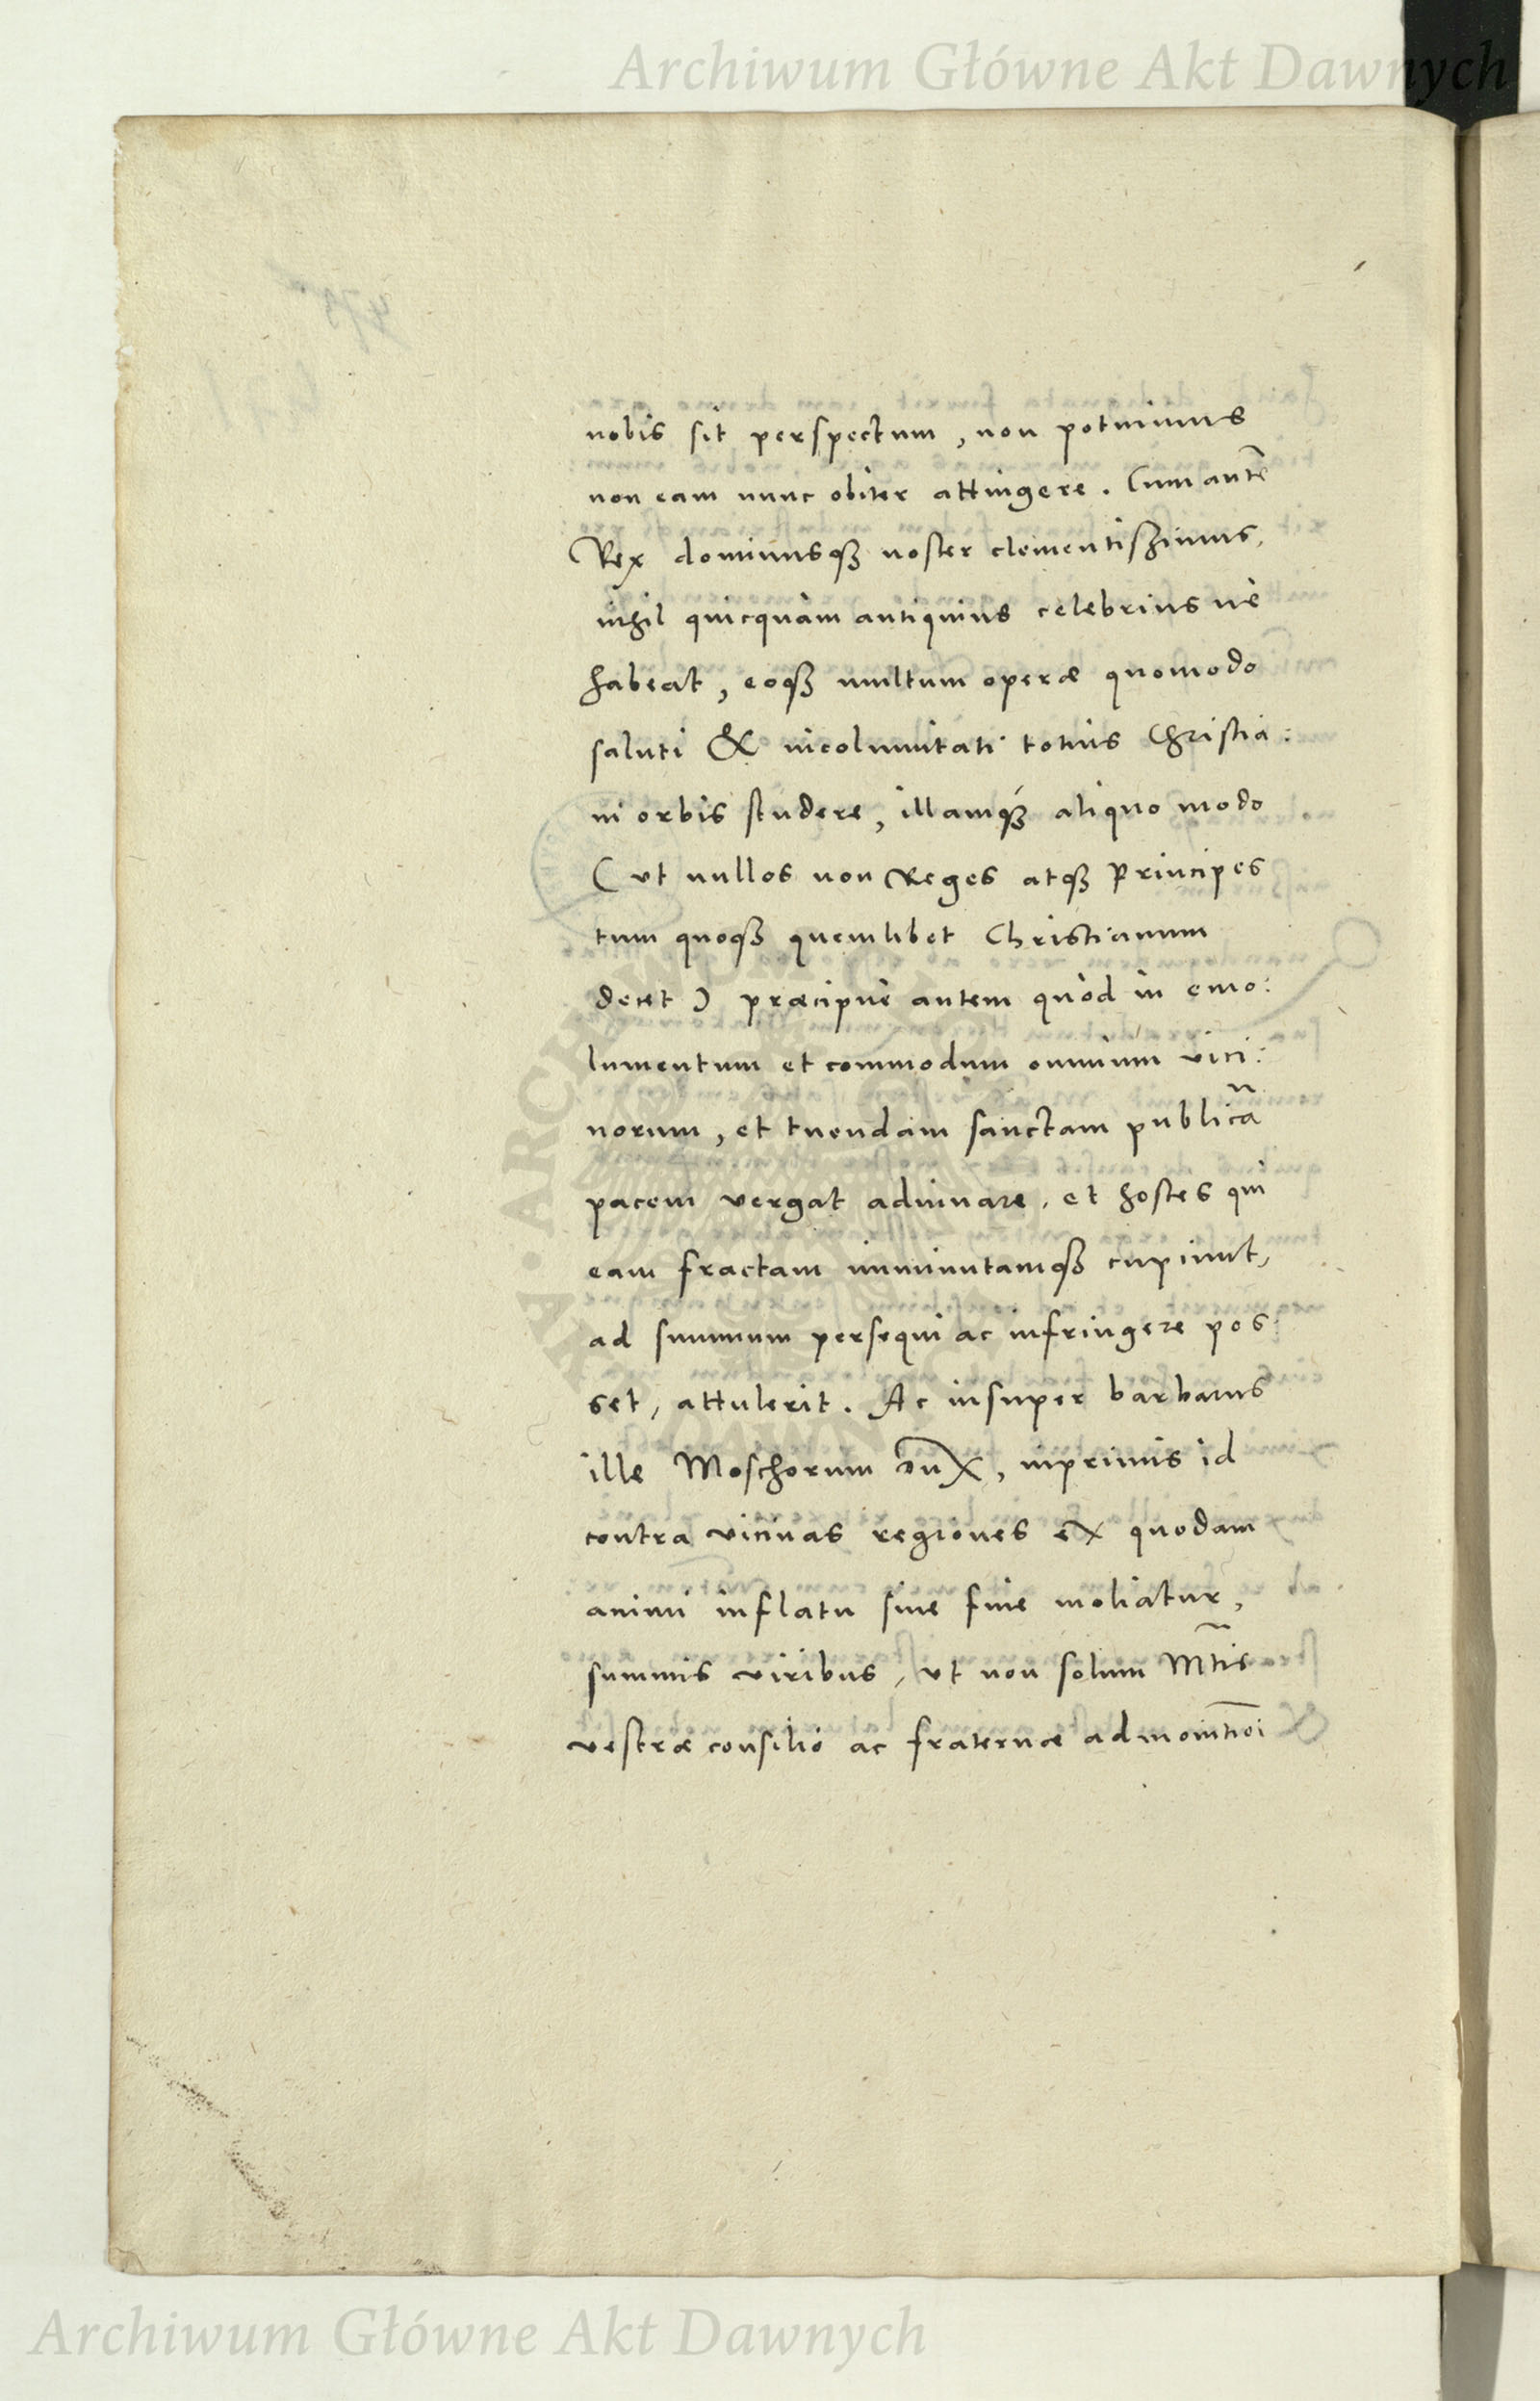 Archiwum Główne Akt Dawnych
nobis sit perspectum, non potuimus
non eam nunc obiter attingere. Cum autē
Rex dominusqꝫ noster clementißimus,
nihil quicquàm antiquius celebrius ue
habeat, eoqꝫ multum operæ quomodo
saluti & incolumitati totius Christia:
ni orbis studere, illamqꝫ aliquo modo
( ut nullos non Reges atqꝫ Principes
tum quoqꝫ quemlibet Christianum
decet ) præcipuè autem quòd in emo:
lumentum et commodum omnium vici:
norum, et tuendam sanctam publicā
pacem vergat adiuuare, et hostes qui
eam fractam imminutamqꝫ cupiunt,
ad summum persequi ac infringere pos:
set, attulerit. Ac insuper barbarus
ille Moschorum dux, inprimis id
contra vicinas regiones ex quodam
animi inflatu sine fine moliatur,
summis viribus, ut non solum Mtis
vestræ consilio ac fraternæ admonitioi
Archiwum Główne Akt Dawnych